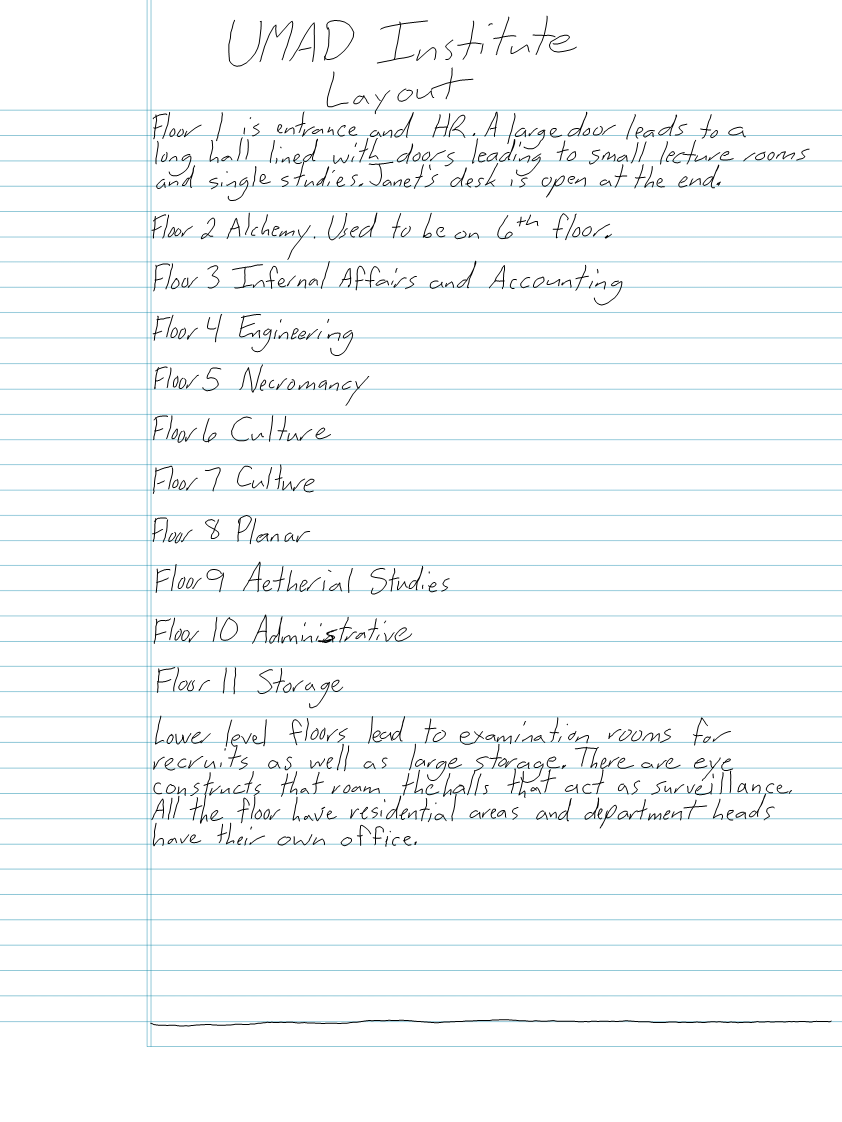 UMAD Institute
Layout
Floor 1 is entrance and HR. A large door leads to a
long hall lined with doors leading to small lecture rooms
and single studies. Janet's desk is open at the end.
Floor 2 Alchemy. Used to be on 6th floor.
Floor 3 Infernal Affairs and Accounting
Floor 4 Engineering
Floor 5 Necromancy
Floor 6 Culture
Floor 7 Culture
Floor 8 Planar
Floor 9 Aetherial Studies
Floor 10 Administrative
Floor 11 Storage
Lower level floors lead to examination rooms for
recruits as well as large storage. There are eye
constructs that roam the halls that act as surveillance.
All the floor have residential areas and department heads
have their own office.